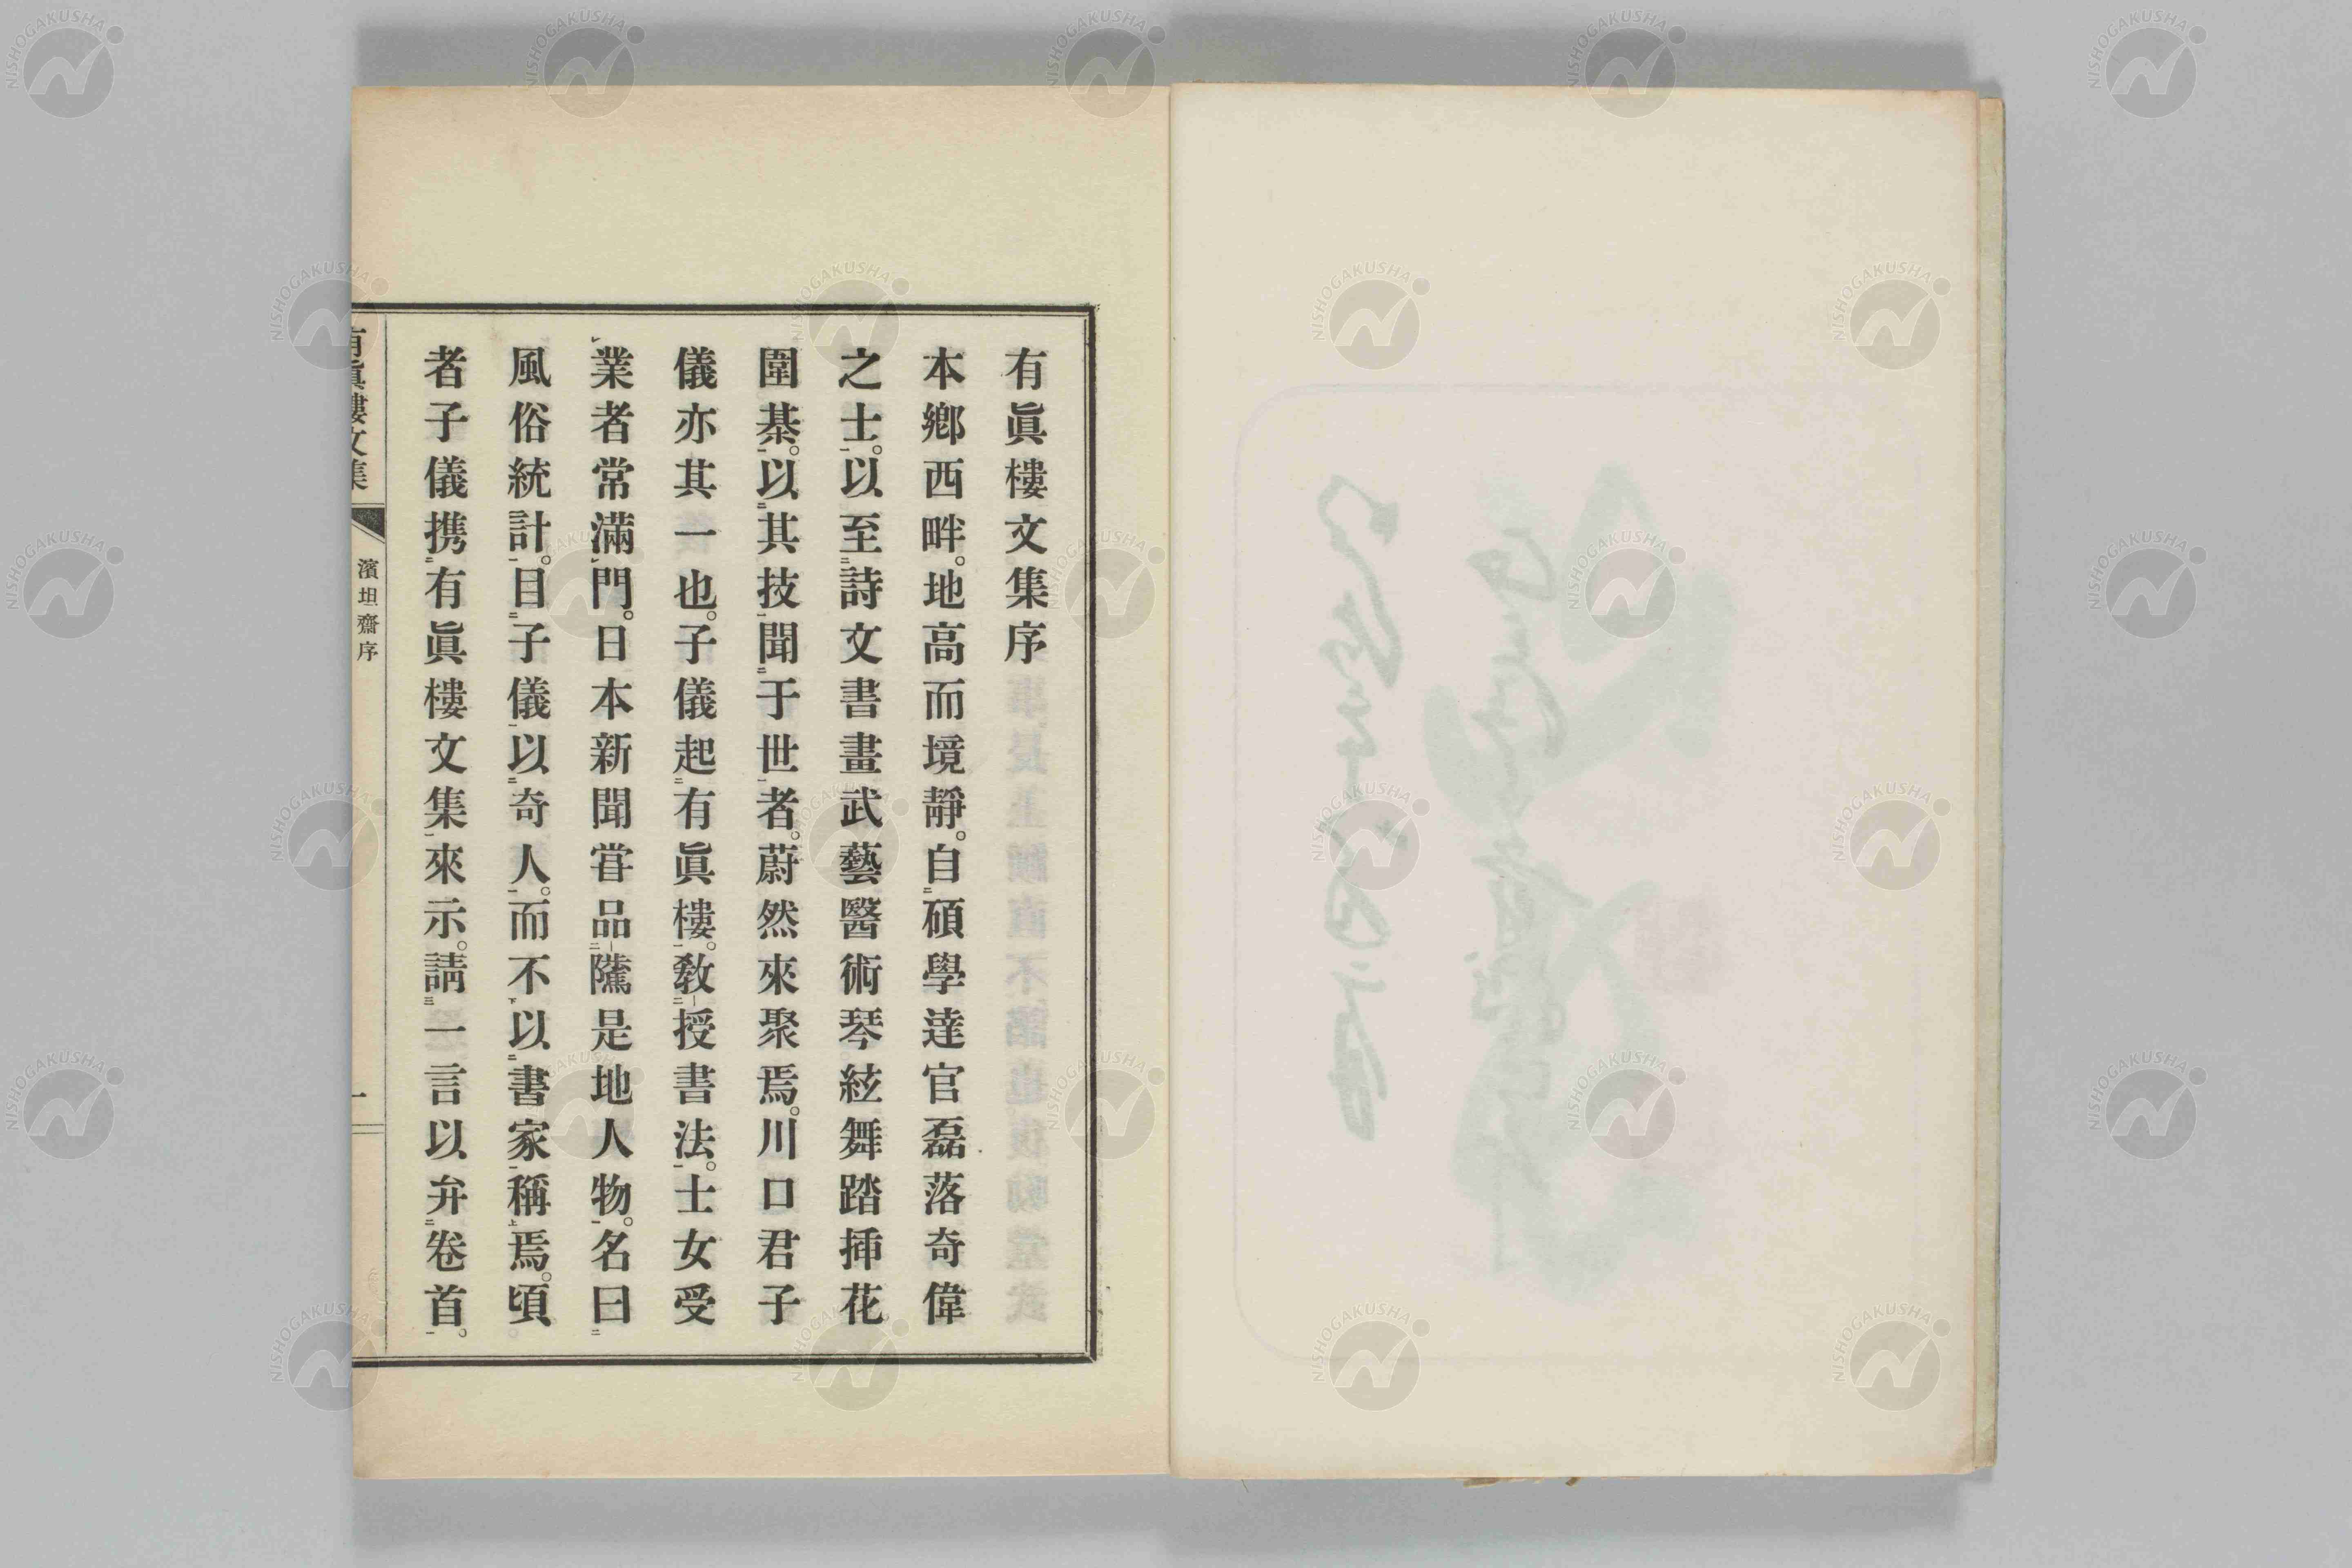 有眞樓文集序
本鄕西畔。地高而境靜。自碩學達官磊落奇偉
之士。以至詩文書畫武藝醫術琴絃舞踏揷花
圍棊。以其技聞于世者。蔚然來聚焉。川口君子
儀亦其一也。子儀起有眞樓。敎授書法。士女受
業者常滿門。日本新聞嘗品隲是地人物。名曰
風俗統計。目子儀以奇人。而不以書家稱焉。頃
者子儀携有眞樓文集來示。請一言以弁卷首。
有眞樓文集
濱坦齋序
一
NISHOGAKUSHA